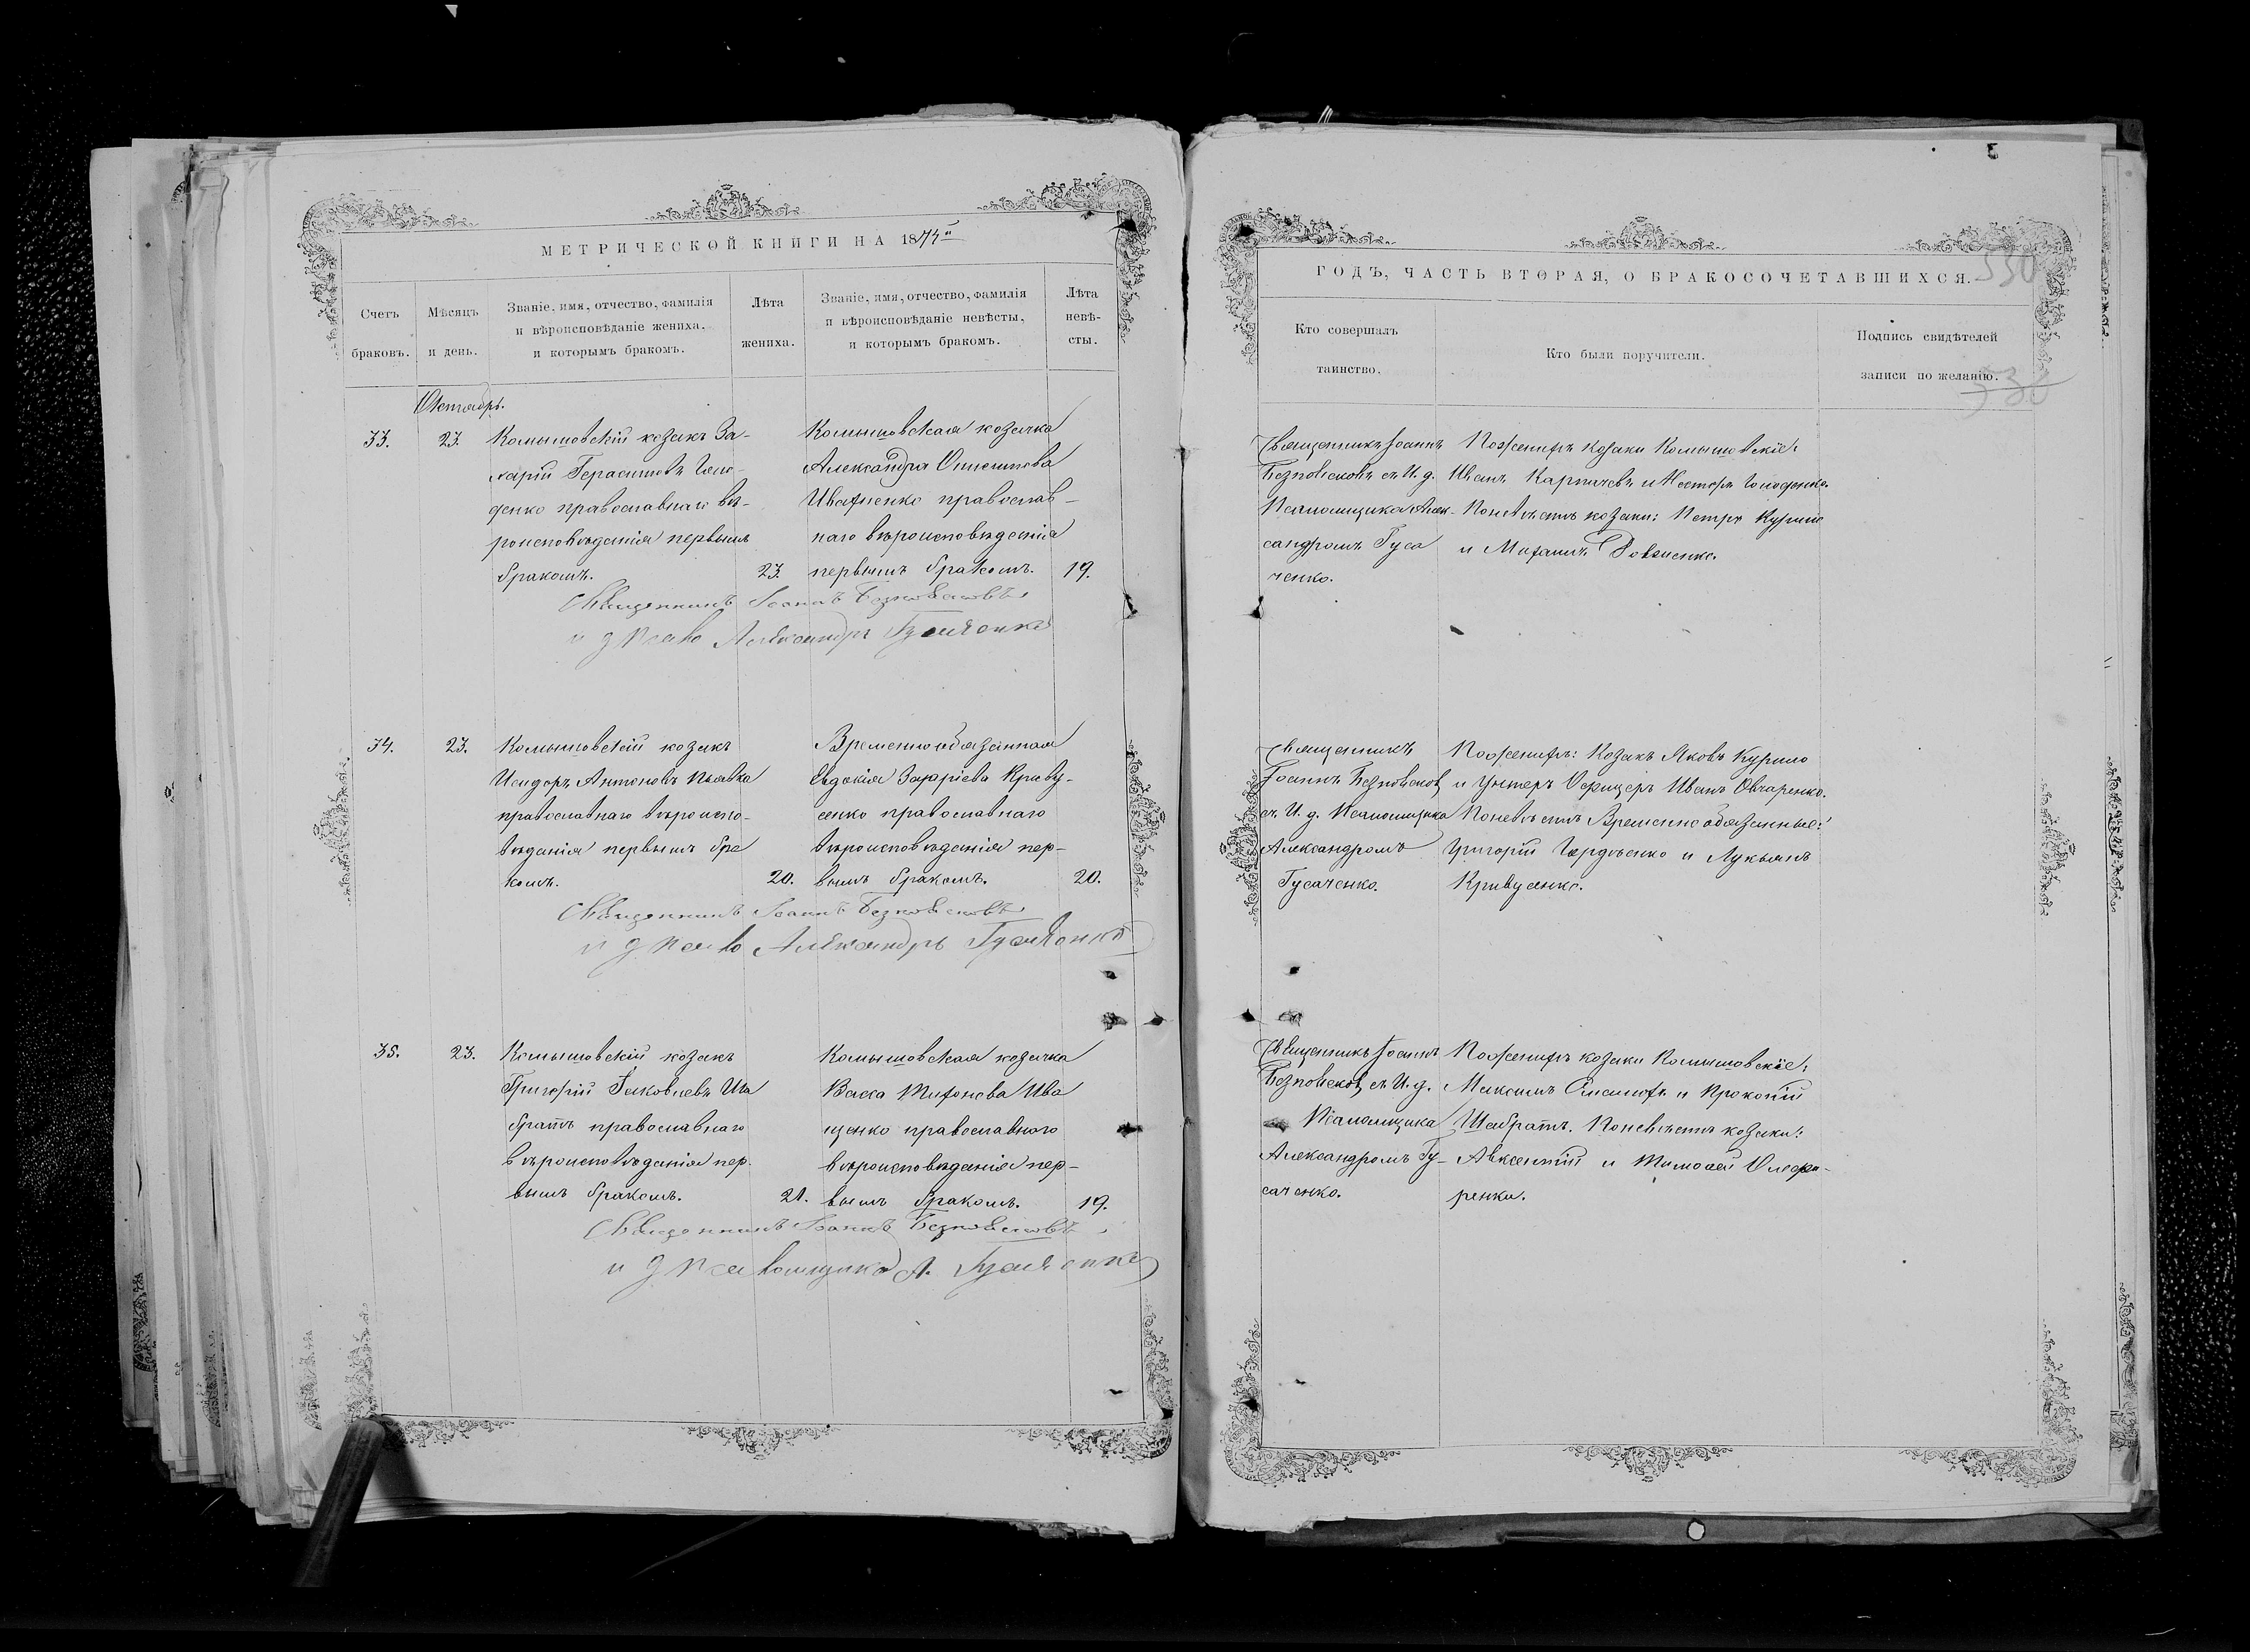 МЕТРИЧЕСКОЙ КНИГИ НА 1874й
Счетъ браковъ.
Мѣсяцъ и день.
Званіе, имя, отчество, фамилія
и вѣроисповѣданіе жениха,
и которымъ бракомъ.
Лѣта жениха.
Званіе, имя, отчество, фамилія
и вѣроисповѣданіе невѣсты,
и которымъ бракомъ.
Лѣта невѣ-
сты.
Октябрь.
33.
23.
Комышовскій козакъ За-
харій Герасимовъ Голо-
денко православнаго вѣ-
роисповѣданія первымъ
бракомъ.
23.
Комышовская козачка
Александра Онисимова
Ивахненко православ-
наго вѣроисповѣданія
первымъ бракомъ.
19.
Священникъ Іоаннъ Безповсковъ
и д псало Александръ Гусаченко
34.
23.
Комышовскій козакъ
Исидоръ Антоновъ Пьявка
православнаго вѣроиспо-
вѣданія первымъ бра
комъ.
20.
Временнообязанная
Евдокія Захаріева Криву-
сенко православнаго
вѣроисповѣданія пер-
вымъ бракомъ.
20.
Священникъ Іоаннъ Безповсковъ
и д псало Александръ Гусаченко
35.
23.
Комышовскій козакъ
Григорій Іаковлевъ Ша
братъ православнаго
вѣроисповѣданія пер-
вымъ бракомъ.
21.
Комышовская козачка
Васса Тихонова Ива
щенко православнаго
вѣроисповѣданія пер-
вымъ бракомъ.
19.
Священникъ Іоаннъ Безповсковъ
и д Псаломщика А. Гусаченко
ГОДЪ, ЧАСТЬ ВТОРАЯ, О БРАКОСОЧЕТАВШИХСЯ.
530
Кто совершалъ
таинство.
Кто были поручители.
Подпись свидѣтелей
записи по желанію.
530
Священникъ Іоаннъ
Безповсковъ съ И. д.
Псаломщика Алек-
сандромъ Гуса
ченко.
По женихѣ козаки Комышовскіе:
Иванъ Карпичевъ и Несторъ Голоденко.
По невѣстѣ козаки: Петръ Курило
и Михаилъ Довженко.
Священникъ
Іоаннъ Безповсковъ
съ И. д. Псаломщика
Александромъ
Гусаченко.
По женихѣ: Козакъ Яковъ Курило
и Унтеръ Офицеръ Иванъ Овчаренко.
По невѣстѣ Временнообязанные:
Григорій Гордѣенко и Лукьянъ
Кривусенко.
Священникъ Іоаннъ
Безповсковъ съ И. д.
Псаломщика
Александромъ Гу-
саченко.
По женихѣ козаки Комышовскіе:
Максимъ и Прокопій
Шабратъ. По невѣстѣ козаки:
Авксентій и Тимофей Олефи-
ренки.